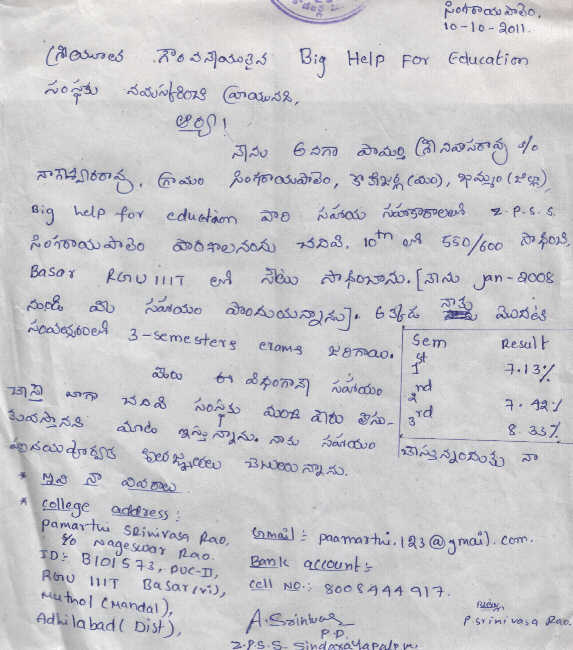 సింగరాయపాలెం,
10-10-2011.
శ్రీయుత గౌరవనీయులైన Big Help For Education
సంస్థకు నమస్కరించి వ్రాయునది,
ఆర్యా!
నేను అనగా పామర్తి శ్రీనివాసరావు S/o
నాగేశ్వరరావు, గ్రామం సింగరాయపాలెం, కొణిజర్ల (మం), ఖమ్మం (జిల్లా)
Big help for education వారి సహాయ సహకారాలతో Z.P.S.S.
సింగరాయపాలెం పాఠశాలనందు చదివి, 10th లో 550/600 సాధించి,
Basar RGU IIIT లో సీటు సాధించాను. [నేను Jan-2008
నుండి మీ సహాయం పొందుతున్నాను]. అక్కడ నాకు మొదటి
సంవత్సరంలో 3-semesters exams జరిగాయి.
Sem Result
1st 7.13%
2nd 7.42%
3rd 8.33%
మీరు ఈ విధంగానే సహాయం
చేస్తే బాగా చదివి సంస్థకు మంచి పేరు తీసు-
కువస్తానని మాట ఇస్తున్నాను. నాకు సహాయం చేస్తున్నందుకు నా
హృదయపూర్వక కృతజ్ఞతలు తెలుపుతున్నాను.
* ఇవి నా వివరాలు
* college address:
Pamarthi Srinivasa Rao, Gmail: paamarthi.123@gmail.com.
S/o Nageswar Rao.
ID:- B101573, PUC-II, Bank account:-
RGU IIIT Basar(vi), Cell No.: 8008444917.
Muthol (Mandal),
Adhilabad (Dist),
A. Srinivas
P.D.
Z.P.S.S. Singarayapalem
P. Srinivasa Rao.